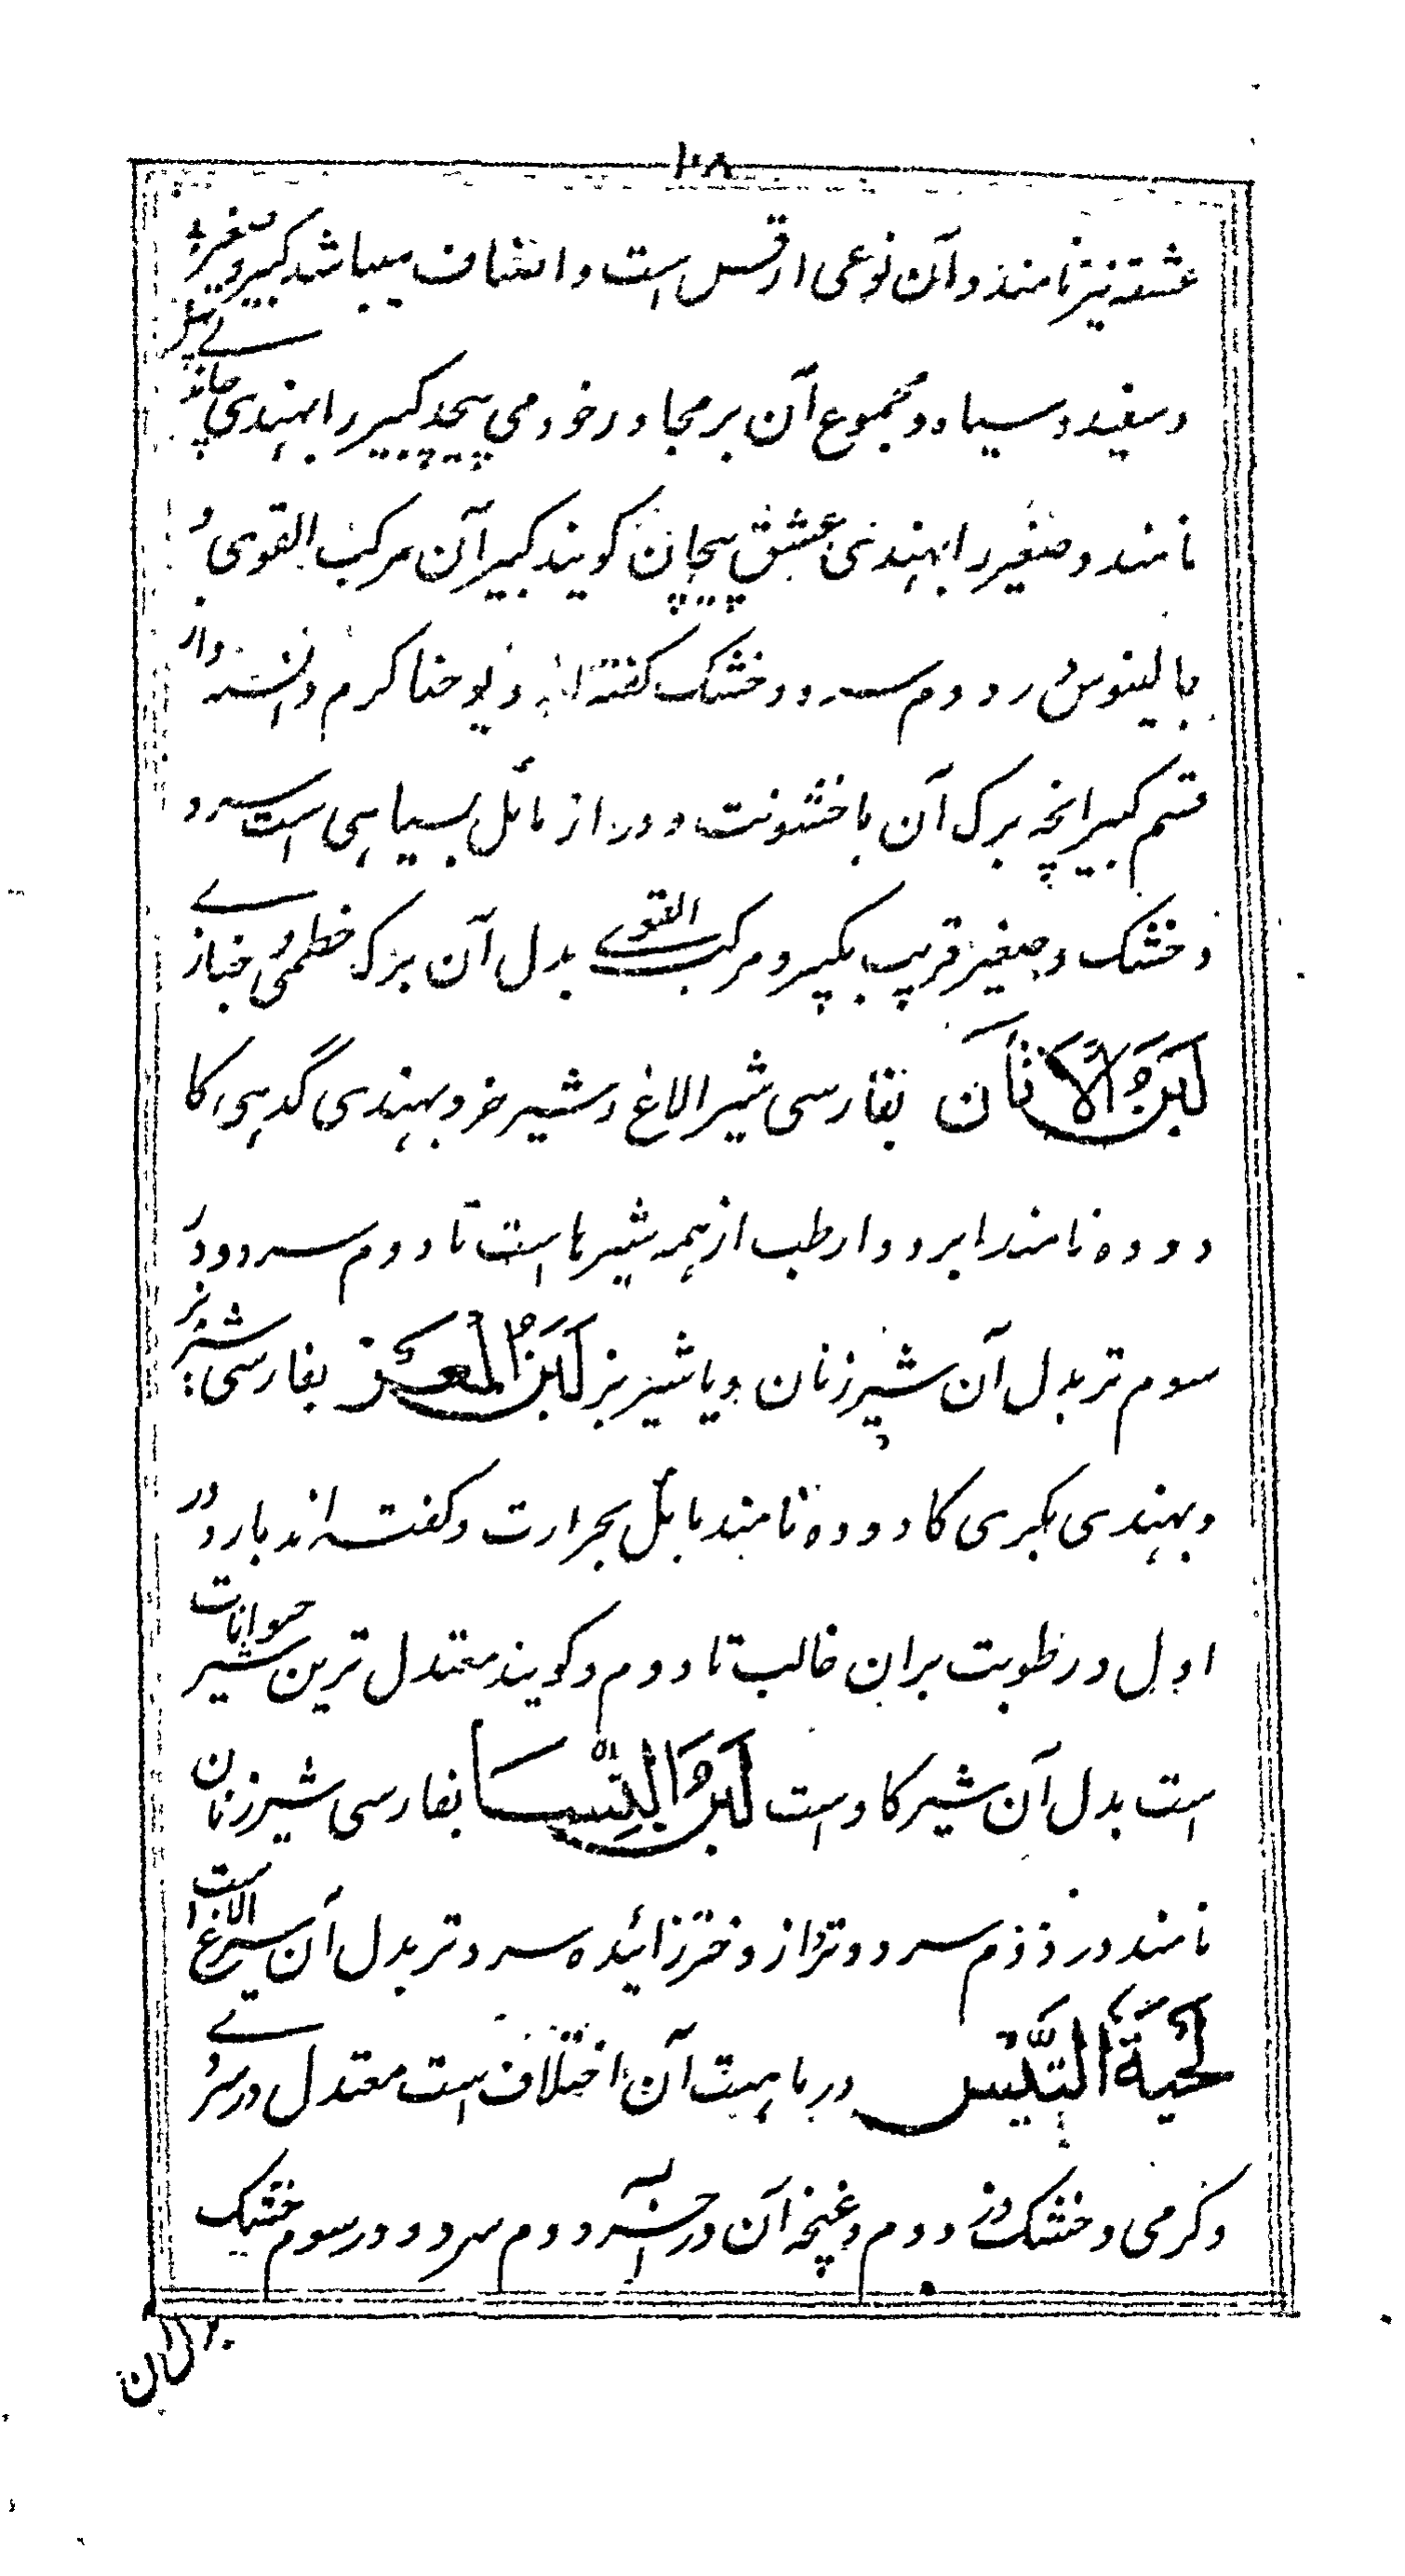 ۱۰۸
عشقه نیز نامند و آن نوعی از قسوس است و اصناف میباشد کبیر و صغیر
و سفید و سیاه و مجموع آن بر مجاور خود می پیچد کبیر را بهندی
نامند و صغیر را بهندی عشق پیچان کویند کبیر آن مرکب القوی و
جالینوس در دوم سرد و خشک کفته اند و یوحنا کرم دانسته و از
قسم کبیر انچه برک آن با خشونت و دراز مائل بسیاهی است سرد
و خشک و صغیر قریب بکبیر و مرکب القوے بدل آن برک خطمی و خبازے
لَبَنُ الاَتَان بفارسی شیر الاغ و شیر خر و بهندی گدہی کا
دودہ نامند ابرد و ارطب از همه شیرها است تا دوم سرد و در
سوم تر بدل آن شیر زنان و یا شیر بز لَبَنُ المَعز بفارسی شیر بز
و بهندی بکری کا دودہ نامند مائل بحرارت و کفته اند بارد در
اول و رطوبت بران غالب تا دوم و کویند معتدل ترین شیر حیوانات
است بدل آن شیر کاو است لَبَنُ النِّسا بفارسی شیر زنان
نامند در دوم سرد و تر و از دختر زائیده سرد و تر بدل آن شیر الاغ است
لَحیَةُ التَّیس در ماهیت آن اختلاف است معتدل در سردے
و کرمی و خشک در دوم و غنچه آن در آخر دوم سرد و در سوم خشک
بدل آن